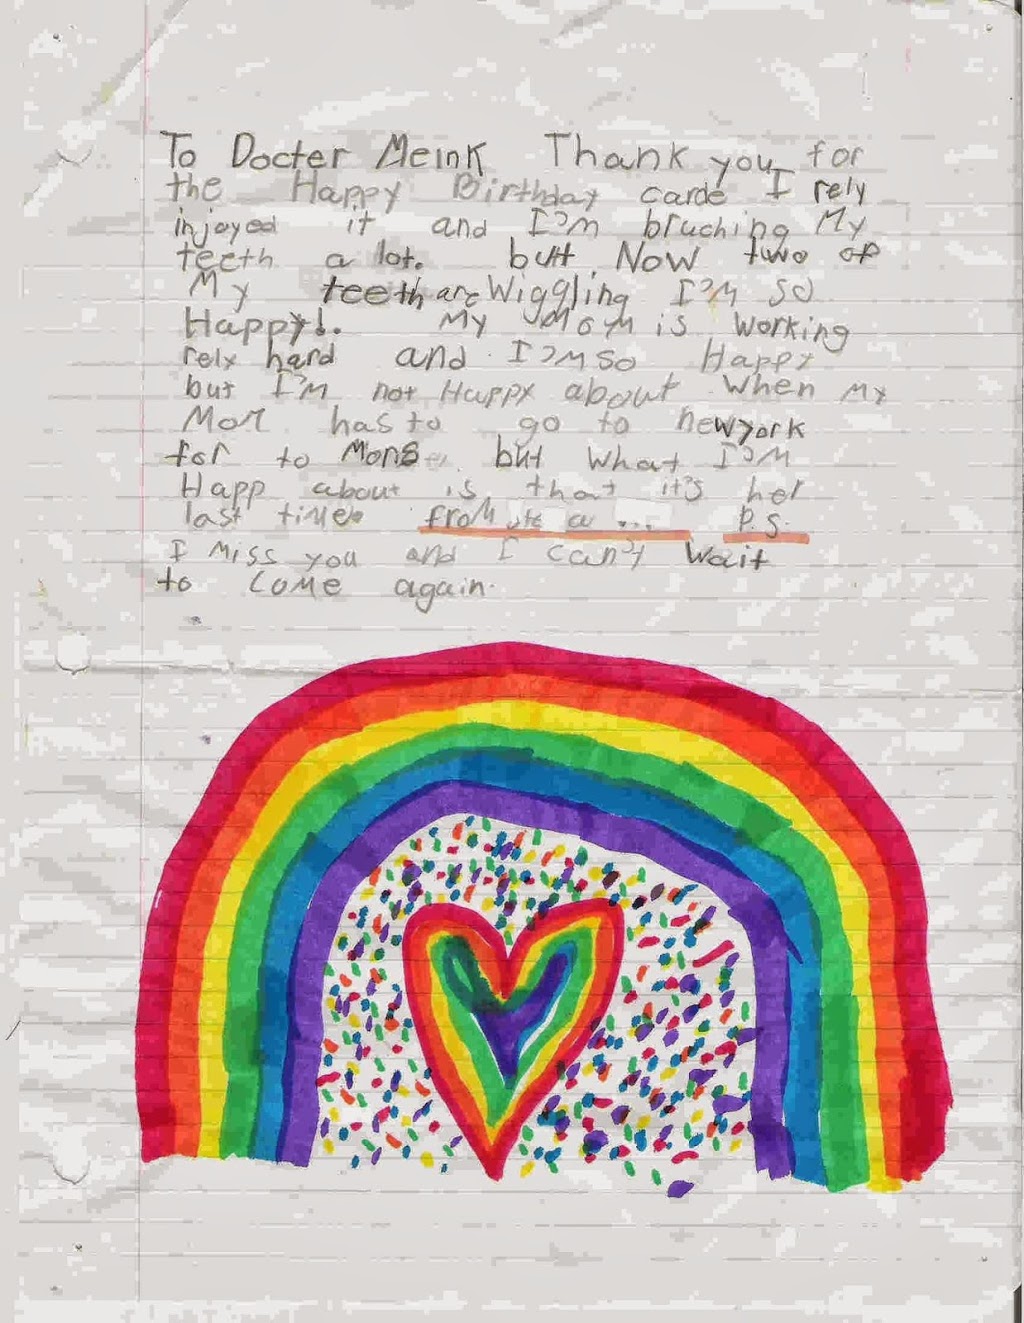 To Docter Meink Thank you for
the Happy Birthday carde I rely
injoyed it and I'm bruching My
teeth a lot. butt Now two of
My teeth are Wiggling I'm so
Happy!. My Mom is working
rely hard and I'm so Happy
but I'm not Happy about when my
Mom has to go to newyork
for to Mons but what I'm
Happ about is that it's her
last time. from a ... P.S.
I miss you and I can't wait
to come again.